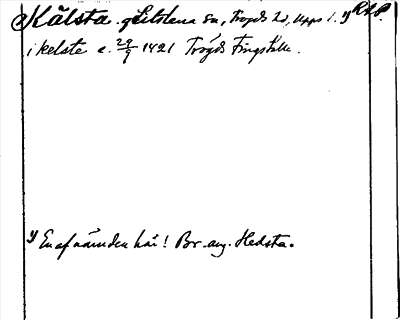 Kälsta. Litslena sn, Trögds hd, Upps l. 1) RAP.
i kelste c. 29/9 1421 Trögds Tingställe.
1) En af nämnden här! Br. ang. Hedsta.